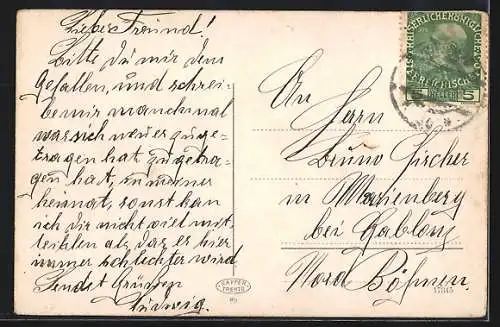 Liebe Freund!
Bitte du mir dem
gefallen, und schrei-
be mir manchmal
was sich neues zuge-
tragen hat zugetra-
gen hat, in meiner
heimat, sonst kan
ich dir nicht viel mit-
teihlen als, daz es hier
immer schlechter wird
Sendet Grüssen
Ludwig.
KAISERLICHEKÖNIGLICHE
ÖSTERREICHISCHE
HELLER 5
An
Herrn
Bruno Fischer
in Marienberg
bei Gablonz
Nord Böhmen.
17345